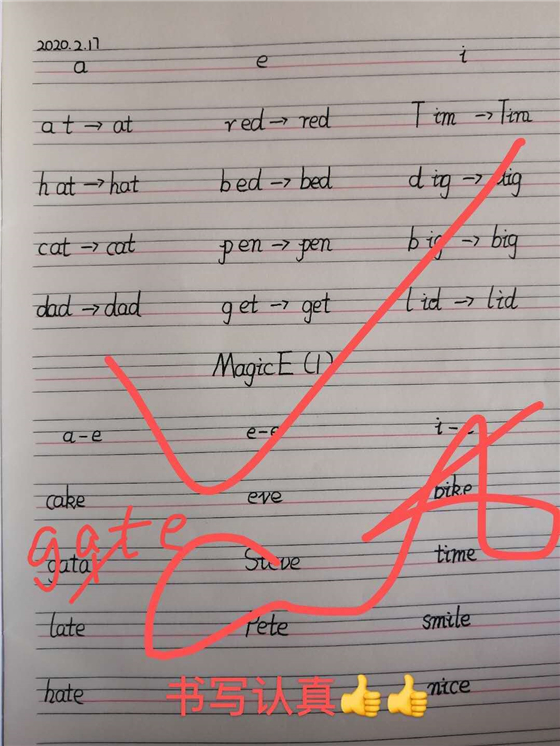 2020.2.17
a e i
at → at red → red Tim → Tim
hat → hat bed → bed dig → dig
cat → cat pen → pen big → big
dad → dad get → get lid → lid
Magic E (1)
a-e e-e i-e
cake eve bike
gate
gata Steve time
late Pete smile
hate nice
书写认真👍👍